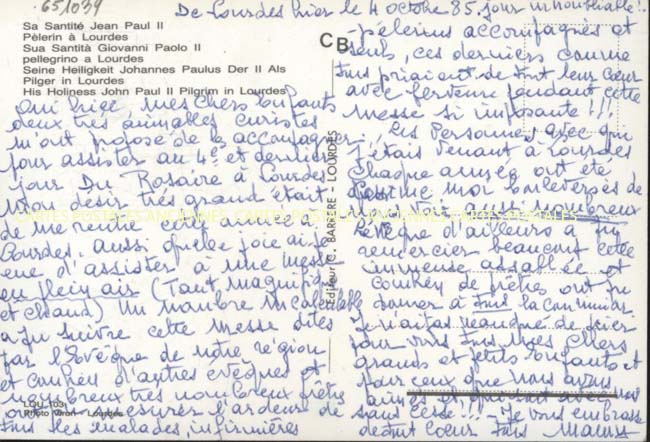 651039
De Lourdes hier le 4 octobre 85, jour inoubliable!
Sa Santité Jean Paul II
Pèlerin à Lourdes
Sua Santità Giovanni Paolo II
pellegrino a Lourdes
Seine Heiligkeit Johannes Paulus Der II Als
Pilger in Lourdes
His Holiness John Paul II Pilgrim in Lourdes
Oui hier, mes chers enfants
deux très aimables curistes
m'ont proposé de les accompagner
pour assister au 4e et dernier
jour Du Rosaire à Lourdes
Mon désir très grand était
de me rendre cette année à
Lourdes, aussi quelle joie ai-je
eue d'assister à une messe
en plein air (Tant magnifique
et chaud) Un nombre incalculable
a pu suivre cette Messe dites
par l'Evêque de notre région
et combien d'autres évêques et
nombreux très nombreux prêtres
mesurer l'ardeur de
tous les malades, infirmières
LOU 103
Photo Viron - Lourdes
CB
Editeur C. BARRERE - LOURDES
pèlerins accompagnés et
seuls, ces derniers comme
tous priaient de tout leur coeur
avec ferveur pendant cette
messe si imposante!!!
Les Personnes avec qui
j'étais venant à Lourdes
chaque année ont été
comme moi bouleversés de
voir aussi nombreux
l'Evêque d'ailleurs a pu
remercier beaucoup cette
immense assemblée et
combien de prêtres ont pu
donner à tous la communion.
Je n'ai pas manqué de prier
pour vous tous mes chers
grands et petits enfants et
pour ceux que nous avons
aimés et
sans cesse... Je vous embrasse
de tout coeur tous Mamie
CARTES POSTALES ANCIENNES CARTES POSTALES ANCIENNES